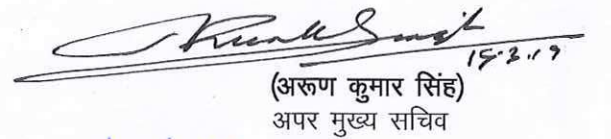 15.3.19
(अरूण कुमार सिंह)
अपर मुख्य सचिव